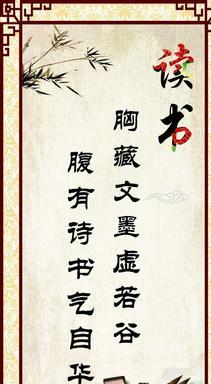 读书
胸藏文墨虚若谷
腹有诗书气自华